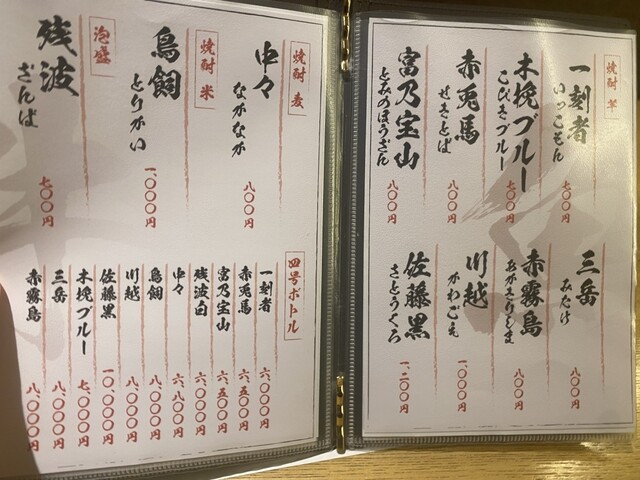 焼酎 芋
一刻者
いっこもん
七〇〇円
木挽ブルー
こびきブルー
七〇〇円
赤兎馬
せきとば
八〇〇円
富乃宝山
とみのほうざん
八〇〇円
三岳
みたけ
八〇〇円
赤霧島
あかきりしま
八〇〇円
川越
かわごえ
一、〇〇〇円
佐藤黒
さとうくろ
一、二〇〇円
焼酎 麦
中々
なかなか
八〇〇円
焼酎 米
鳥飼
とりかい
一、〇〇〇円
泡盛
残波
ざんぱ
七〇〇円
四号ボトル
一刻者 六、〇〇〇円
赤兎馬 六、五〇〇円
富乃宝山 六、五〇〇円
残波白 六、〇〇〇円
中々 六、八〇〇円
鳥飼 八、〇〇〇円
川越 八、〇〇〇円
佐藤黒 一〇、〇〇〇円
木挽ブルー 七、〇〇〇円
三岳 八、〇〇〇円
赤霧島 八、〇〇〇円